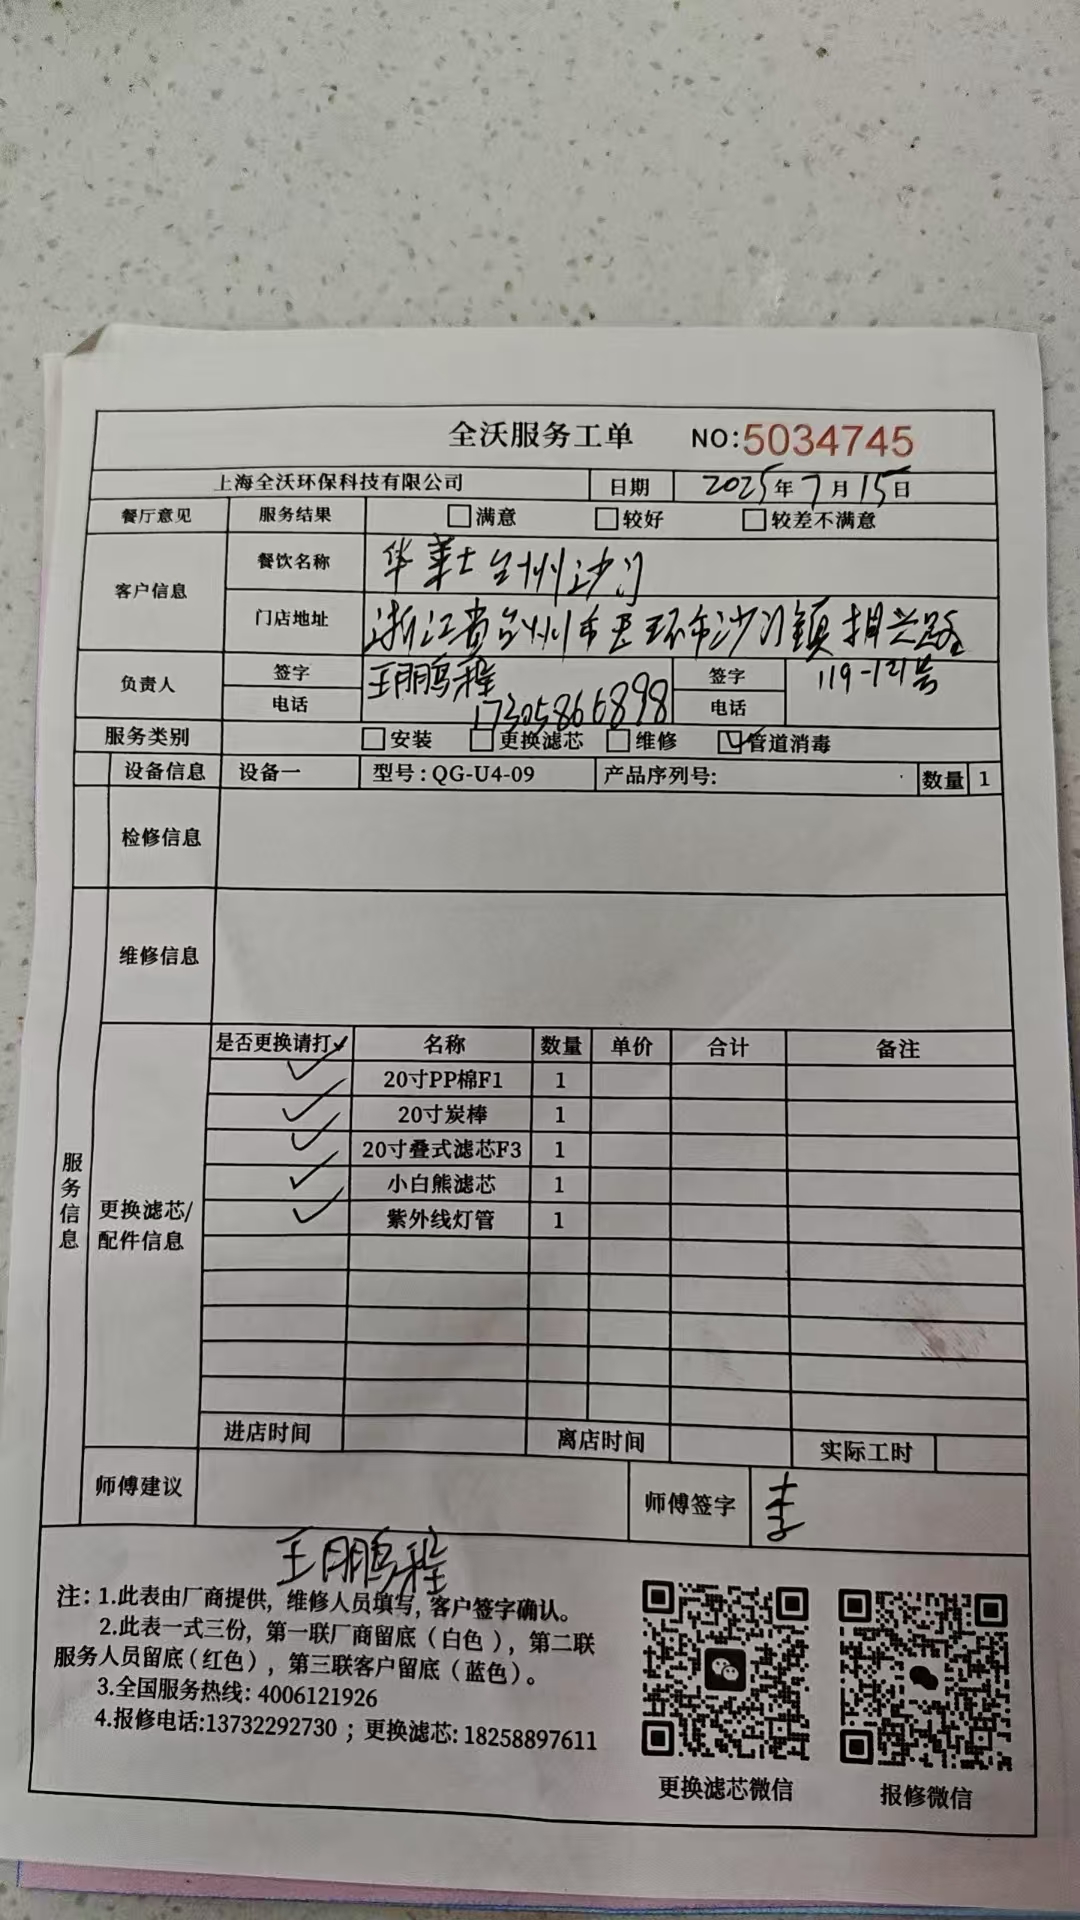 全沃服务工单 NO:5034745
上海全沃环保科技有限公司 日期 2025年7月15日
餐厅意见 服务结果 满意 较好 较差不满意
客户信息 餐饮名称 华莱士台州沙门
门店地址 浙江省台州市玉环市沙门镇振兴路
119-121号
负责人 签字 王鹏程 签字
电话 17305866898 电话
服务类别 安装 更换滤芯 维修 管道消毒
设备信息 设备一 型号:QG-U4-09 产品序列号: 数量 1
检修信息
维修信息
服务信息
更换滤芯/
配件信息
是否更换请打✓ 名称 数量 单价 合计 备注
✓ 20寸PP棉F1 1
✓ 20寸炭棒 1
✓ 20寸叠式滤芯F3 1
✓ 小白熊滤芯 1
✓ 紫外线灯管 1
进店时间 离店时间 实际工时
师傅建议 师傅签字 李
王鹏程
注: 1.此表由厂商提供, 维修人员填写, 客户签字确认。
2.此表一式三份, 第一联厂商留底(白色), 第二联
服务人员留底(红色), 第三联客户留底(蓝色)。
3.全国服务热线: 4006121926
4.报修电话:13732292730 ; 更换滤芯: 18258897611
更换滤芯微信 报修微信